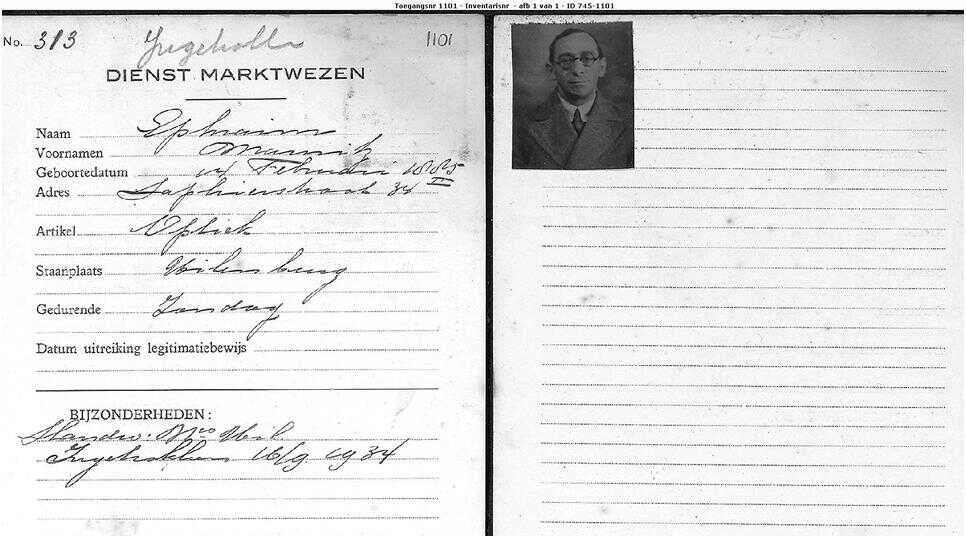 Toegangsnr 1101 - Inventarisnr - afb 1 van 1 - ID 745-1101
No. 313
1101
DIENST MARKTWEZEN
Naam Ephraim
Voornamen Mausik
Geboortedatum 14 Februari 1885
Adres Saphierstraat 34 II
Artikel Optiek
Staanplaats Uilenburg
Gedurende Zondag
Datum uitreiking legitimatiebewijs
BIJZONDERHEDEN:
Ingetrokken 16/9 1934